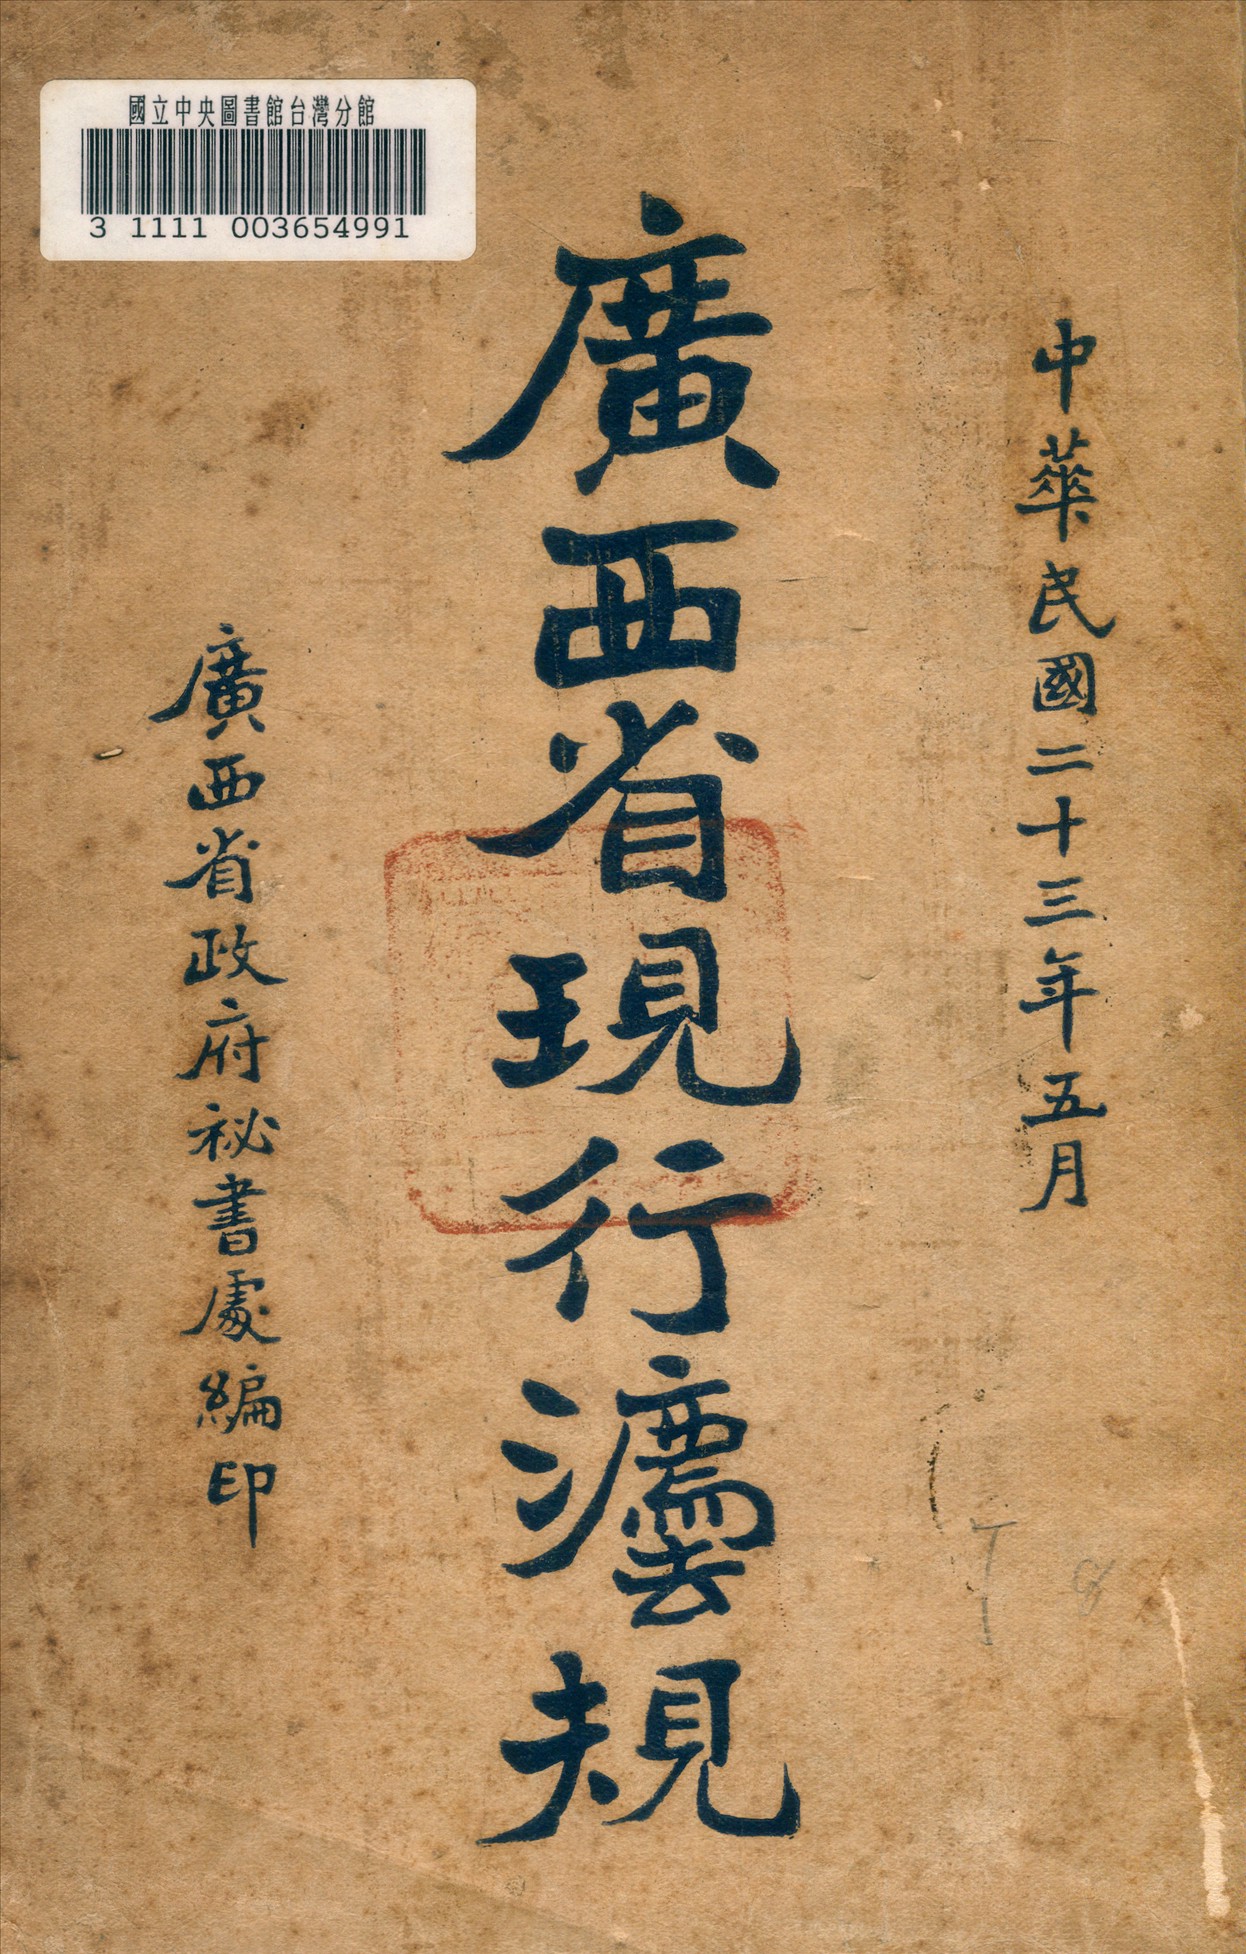 國立中央圖書館台灣分館
3 1111 003654991
中華民國二十三年五月
廣西省現行灋規
廣西省政府祕書處編印